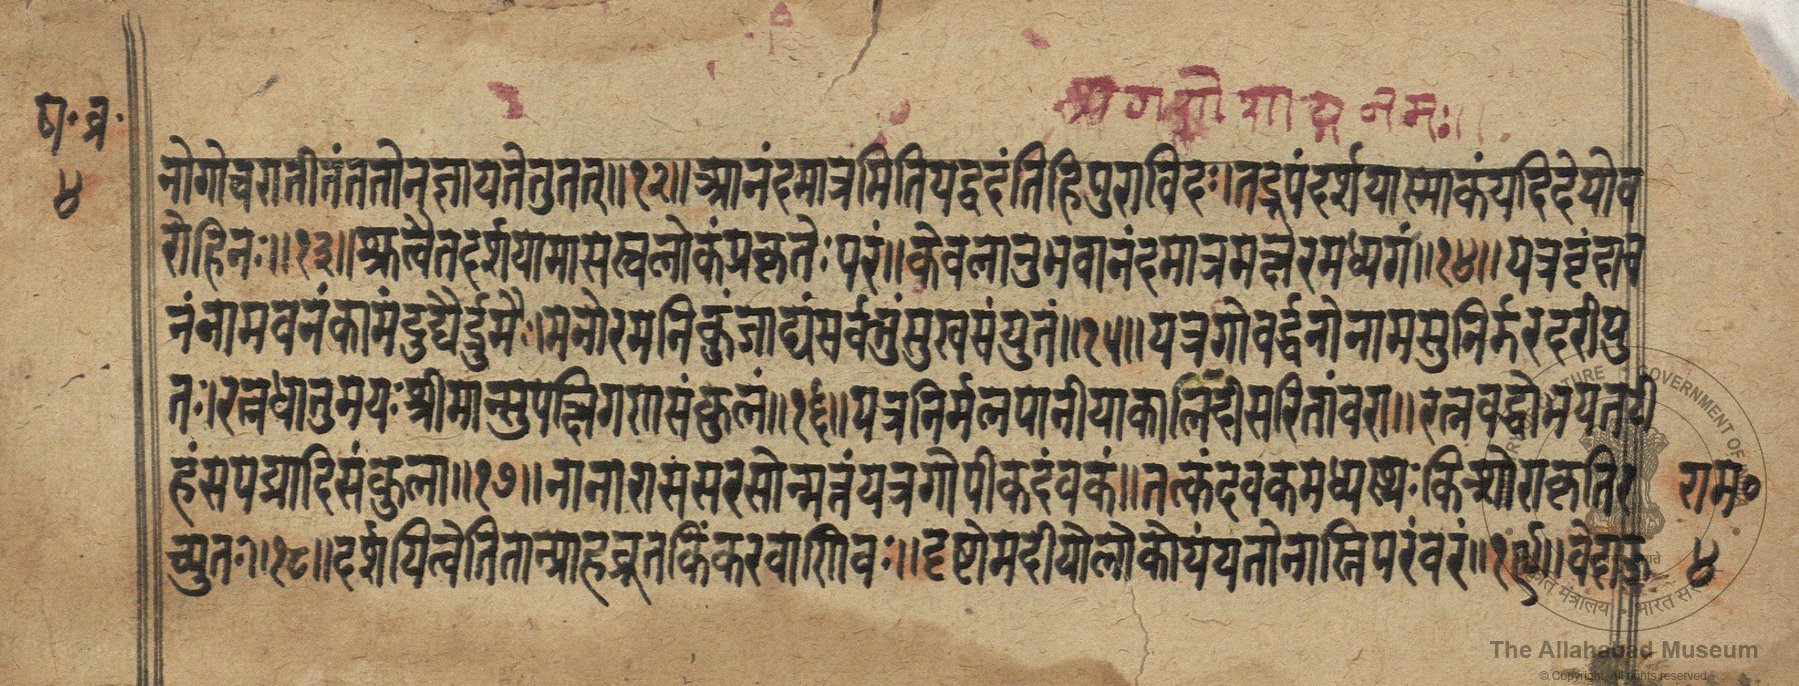 श्रीगणेशायनमः।।
ष॰ब्र॰
४
नोगोचरातीतंततोनज्ञायतेतुतत्॥१२॥आनंदमात्रमितियद्वदंतिहिपुराविदः।तद्रूपंदर्शयास्माकंयदिदेयोव
रोहिनः॥१३॥श्रुत्वैतद्दर्शयामासस्वलोकंप्रकृतेःपरं॥केवलानुभवानंदमात्रमक्षरमध्यगं॥१४॥यत्रवृंदाव
नंनामवनंकामंदुघैर्द्रुमैः।मनोरमनिकुंजाढ्यंसर्वर्तुसुखसंयुतं॥१५॥यत्रगोवर्द्धनोनामसुनिर्झरदरीयु
तः।रत्नधातुमयःश्रीमान्सुपक्षिगणसंकुलं॥१६॥यत्रनिर्मलपानीयाकालिंदीसरितांवरा॥रत्नवद्धोभयतटी
हंसपद्मादिसंकुला॥१७॥नानारासंसरसोन्मत्तंयत्रगोपीकदंवकं॥तत्कंदवकमध्यस्थःकिशोराकृतिर
राम॰
च्युतः॥१८॥दर्शयित्वेतितान्प्राहब्रूतकिंकरवाणिवः॥दृष्टोमदीयोलोकोयंयतोनास्तिपरंवरं॥१९॥वेदाऊ
४
The Allahabad Museum
© Copyright. All rights reserved.